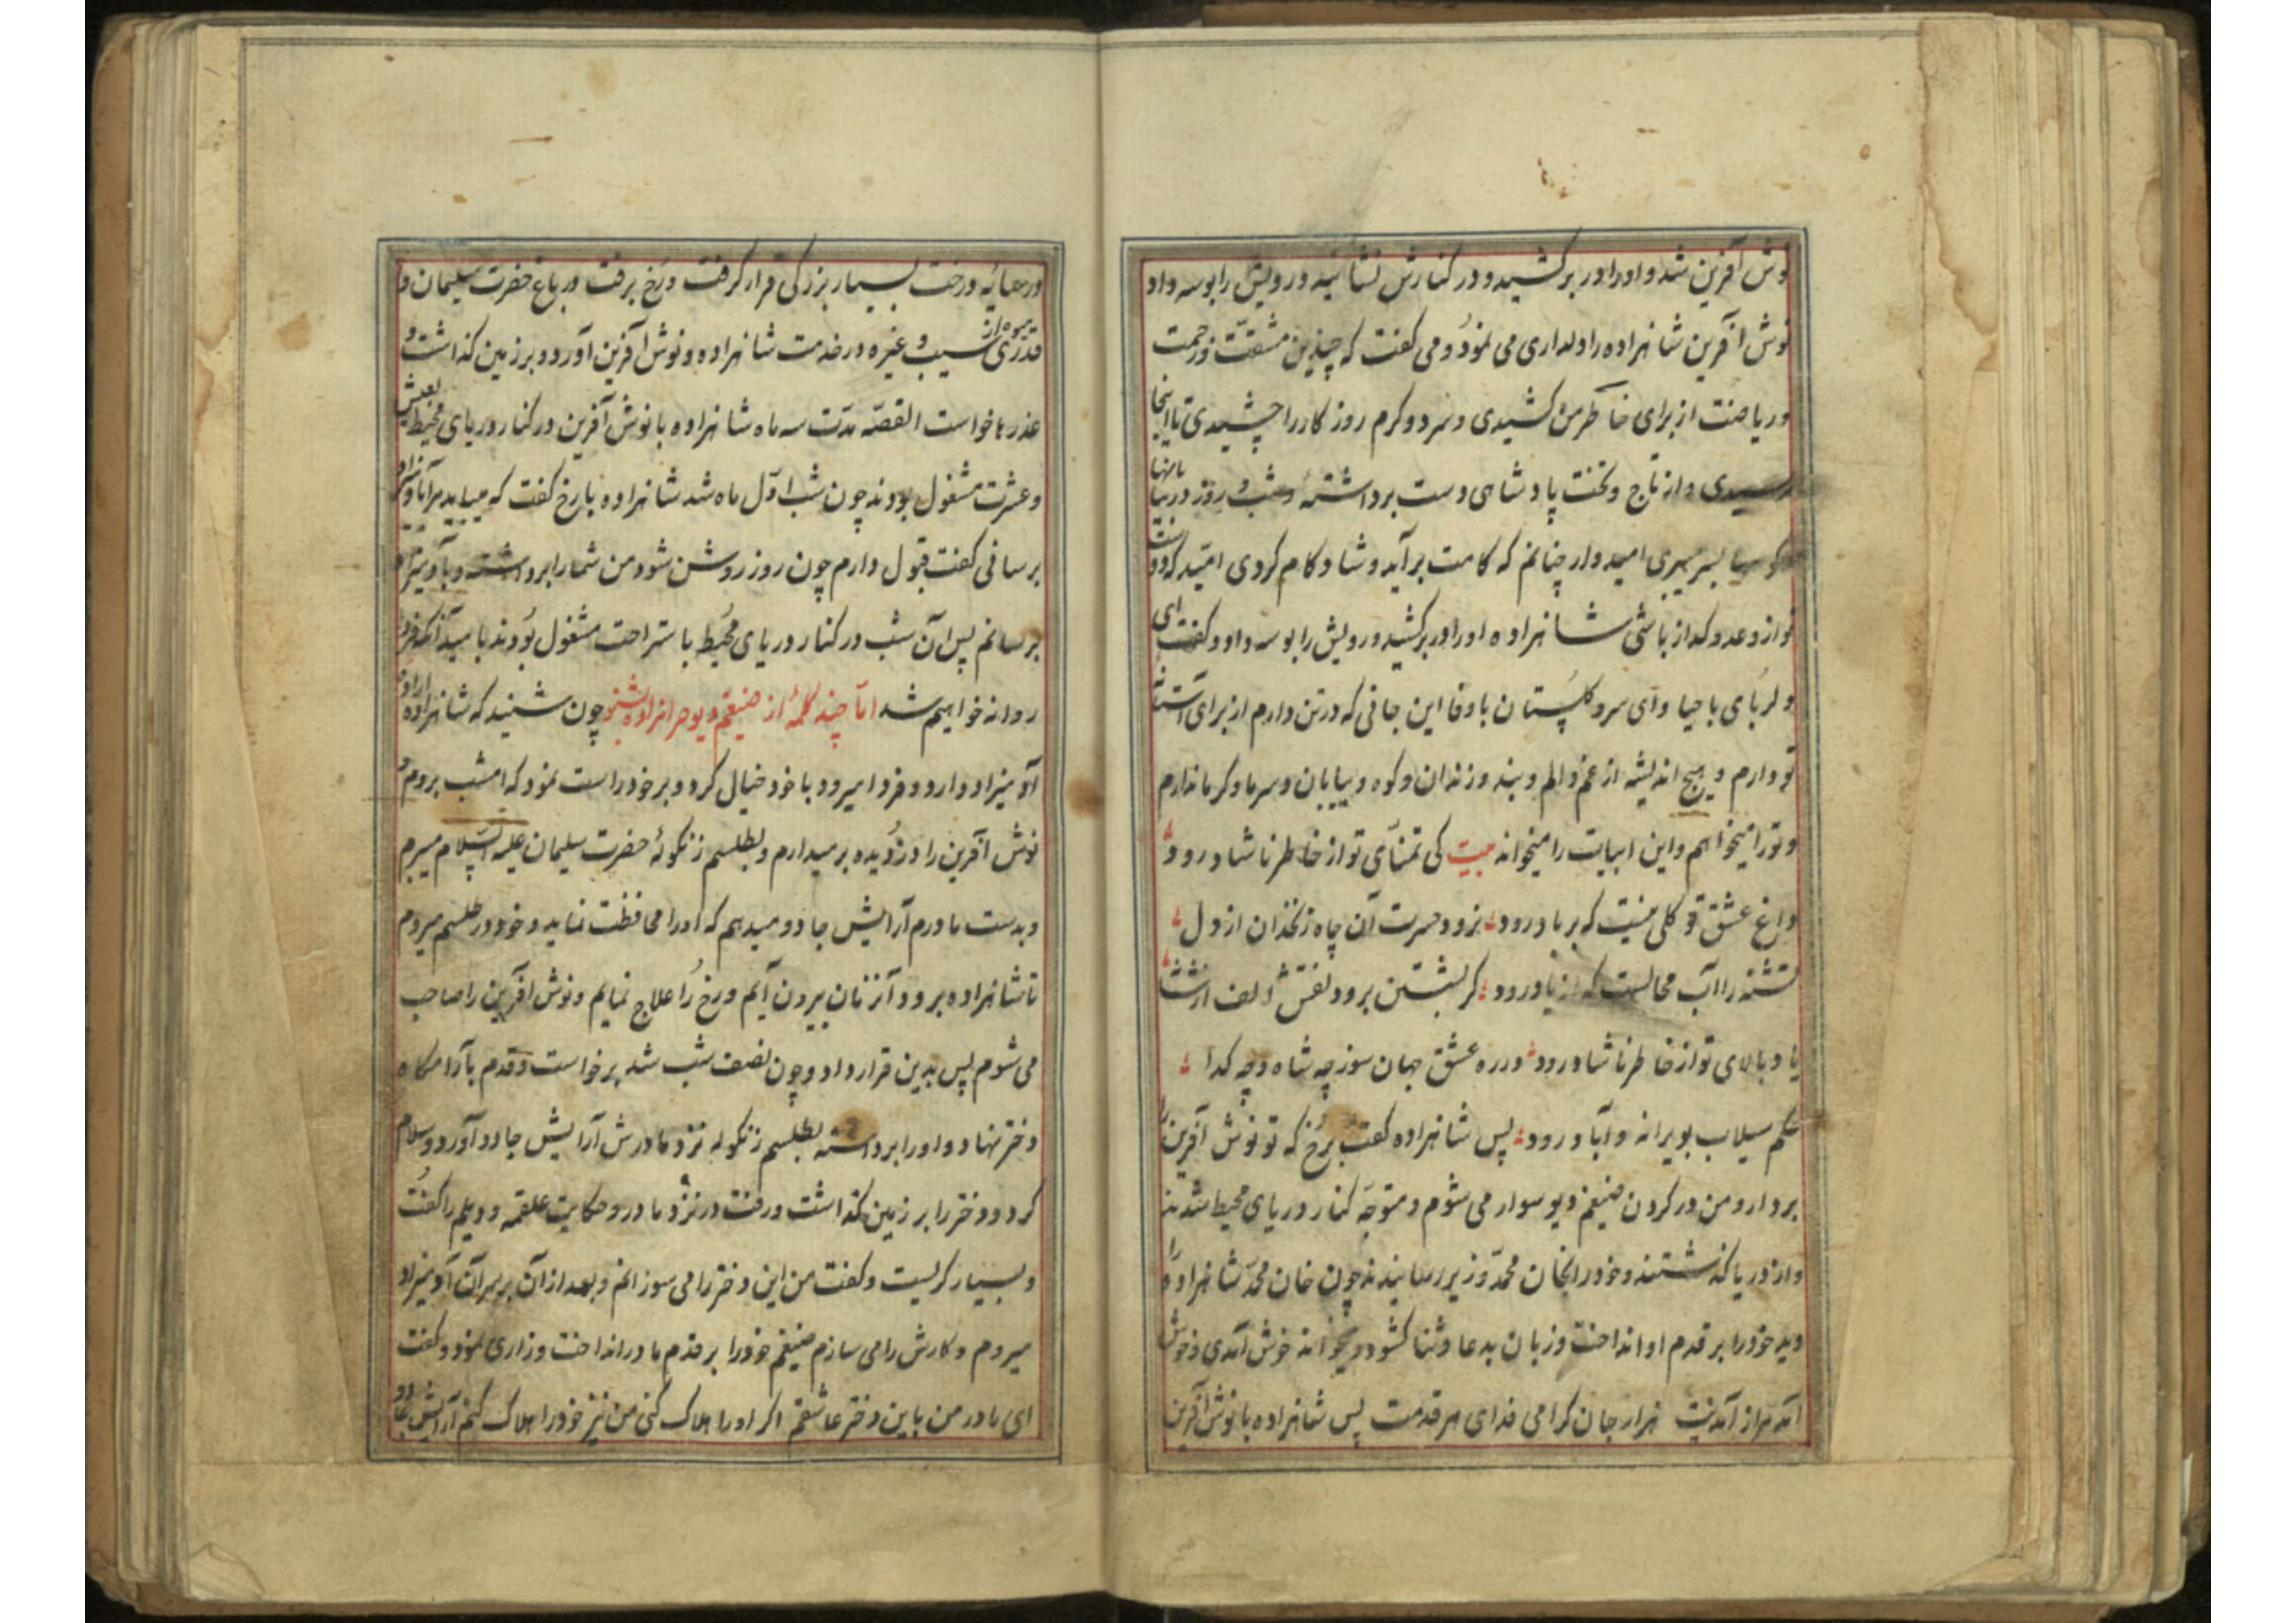 نوش آفرین شد و او را در بر کشید و در کنارش نشانید و رویش را بوسه داد
نوش آفرین شاهزاده را دلداری می نمود و می گفت که چندین مشقت و زحمت
و ریاضت از برای خاطر من کشیدی و سرد و گرم روزگار را چشیدی تا اینجا
رسیدی و از تاج و تخت پادشاهی دست برداشتهٔ و شب و روز در بیابانها
و کوهها بسر میبری امیدوار چنانم که کامت برآید و شاد کام کردی امید که دوست
نواز و عدو گداز باشی شاهزاده او را در بر کشید و رویش را بوسه داد و گفت ای
دلربای با حیا و ای سرو گلستان با وفا این جانی که در تن دارم از برای
تو دارم و هیچ اندیشه از غم و الم و بند و زندان و کوه و بیابان و سرما و گرما ندارم
و تو را میخواهم و این ابیات را میخواند بیت کی تمنای تو از خاطر ناشاد رود
داغ عشق تو گلی نیست که بر باد رود نرود حسرت آن چاه زنخدان از دل
تشنه را آب محالست که از یاد رود گر بشستن برود نقش الف از
یاد بالای تو از خاطر ناشاد رود در ره عشق جهان سوز چه شاه و چه گدا
حکم سیلاب بویرانه و آباد رود پس شاهزاده گفت برخ که تو نوش آفرین را
بردار و من در گردن ضیغم دیو سوار می شوم و متوجه کنار دریای محیط شدند
و از دریا گذشتند و خود را بخان محمد وزیر رسانیدند چون خان محمد شاهزاده را
دید خود را بر قدم او انداخت و زبان بدعا و ثنا گشود و میخواند خوش آمدی و خوش
آمد مرا از آمدنت هزار جان گرامی فدای هر قدمت پس شاهزاده با نوش آفرین
در سایه درخت بسیار بزرگی قرار گرفت و رخ برفت در باغ حضرت سلیمان و
قدری میوه از سیب و غیره در خدمت شاهزاده و نوش آفرین آورد و بر زمین گذاشت و
عذرها خواست القصه مدت سه ماه شاهزاده با نوش آفرین در کنار دریای محیط بعیش
و عشرت مشغول بودند چون شب اول ماه شد شاهزاده با رخ گفت که میباید مرا
برسانی گفت قبول دارم چون روز روشن شود من شما را برداشته و بآدمیزاد
برسانم پس آن شب در کنار دریای محیط باستراحت مشغول بودند بامید آنکه فردا
روانه خواهیم شد اما چند کلمهٔ از ضیغم دیو حرامزاده بشنو چون شنید که شاهزاده اراده
آدمیزاد دارد و فردا میرود با خود خیال کرد و بر خود راست نمود که امشب بروم و
نوش آفرین را دزدیده بر میدارم و بطلسم زنگولهٔ حضرت سلیمان علیه السلام میبرم
و بدست مادرم آرایش جادو میدهم که او را محافظت نماید و خود در طلسم میروم
تا شاهزاده برود آنزمان بیرون آیم و رخ را علاج نمایم و نوش آفرین را صاحب
می شوم پس بدین قرار داد و چون نصف شب شد برخواست و قدم بآرامگاه
دختر نهاد و او را برداشته بطلسم زنگوله نزد مادرش آرایش جادو آورد و سلام
کرد و دختر را بر زمین گذاشت و رفت در نزد مادر و حکایت علقمه و دیلم را گفت
و بسیار گریست و گفت من این دختر را می سوزانم و بعد از آن بر سر آن آدمیزاد
میروم و کارش را می سازم ضیغم خود را بر قدم مادر انداخت و زاری نمود و گفت
ای مادر من باین دختر عاشقم اگر او را هلاک کنی من نیز خود را هلاک کنم آرایش جادو